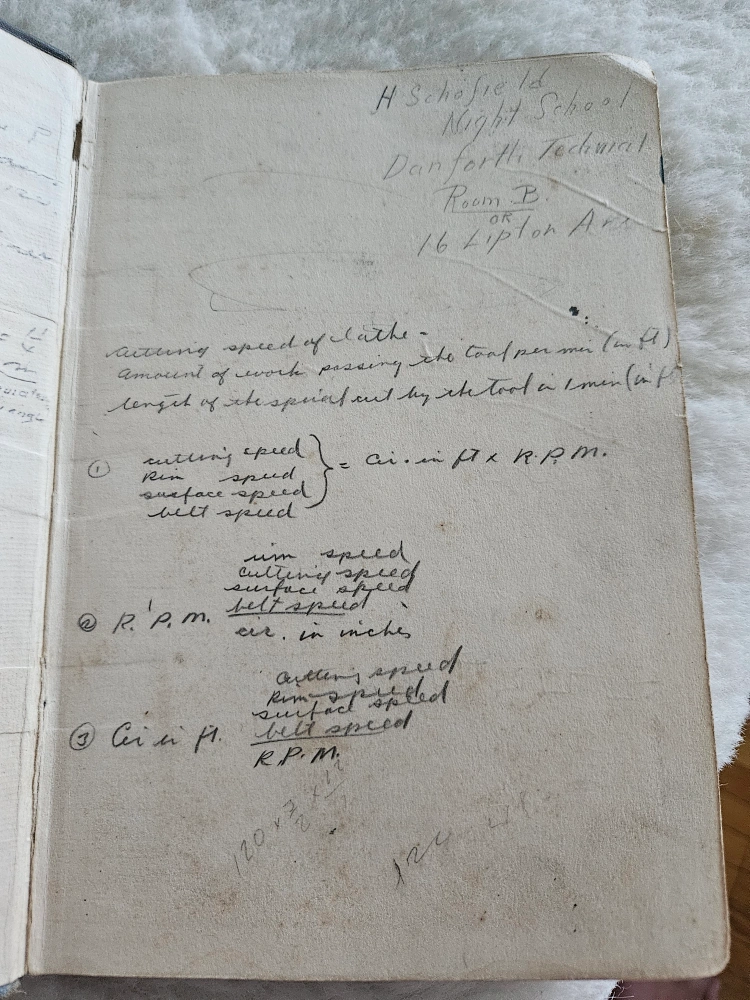 H Schofield
Night School
Danforth Technical
Room B.
OR
16 Lipton Ave
cutting speed of lathe -
amount of work passing the tool per min (in ft)
length of the spiral cut by the tool in 1 min (in ft
① cutting speed
Rim speed
surface speed
belt speed
} = Cir. in ft x R.P.M.
rim speed
cutting speed
surface speed
belt speed
② R.P.M.
cir. in inches
cutting speed
Rim speed
surface speed
③ Cir in ft. belt speed
R.P.M.
120 x
124